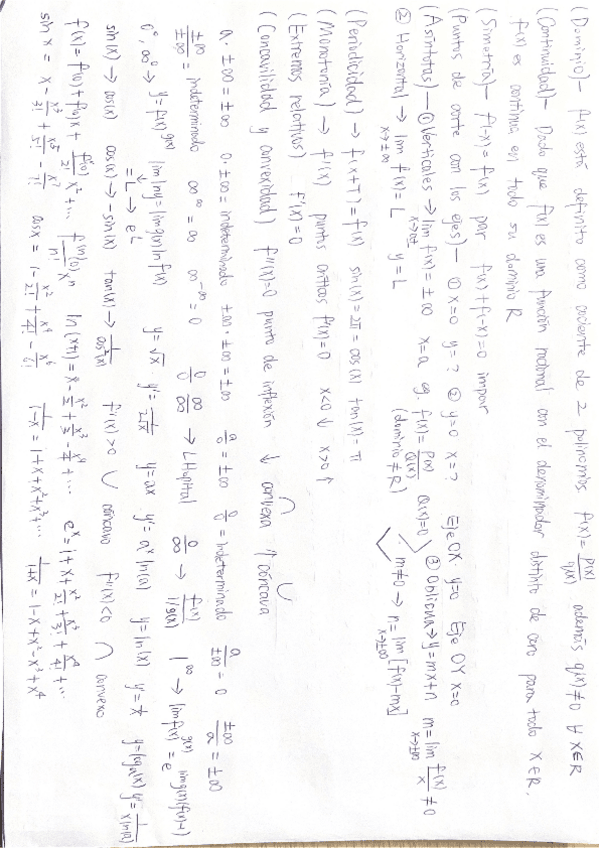 (Dominio) – f(x) está definido como cociente de 2 polinomios f(x) = p(x)/q(x) además q(x) ≠ 0 ∀ x∈R
(Continuidad) – Dado que f(x) es una función racional con el denominador distinto de cero para todo x∈R,
f(x) es continua en todo su dominio R
(Simetría) – f(-x) = f(x) par f(x) + f(-x) = 0 impar
(Puntos de corte con los ejes) – ① x=0 y=? ② y=0 x=? Eje OX y=0 Eje OY x=0
(Asíntotas) – ① Verticales → lim x→a± f(x) = ±∞ x=a eg. f(x) = P(x)/Q(x) Q(x)=0 (dominio ≠ R) ③ Oblicua → y=mx+n m = lim x→±∞ f(x)/x ≠ 0
② Horizontal → lim x→±∞ f(x) = L y = L m≠0 → n = lim x→±∞ [f(x)-mx]
(Periodicidad) → f(x+T) = f(x) sin(x) = 2π = cos(x) tan(x) = π
(Monotonía) → f'(x) puntos críticos f'(x)=0 x<0 ↓ x>0 ↑
(Extremos relativos) – f'(x)=0
(Concavilidad y convexidad) f''(x)=0 punto de inflexión ↓ convexa ∩ ↑ cóncava ∪
a · ±∞ = ±∞ 0 · ±∞ = indeterminado ±∞ · ±∞ = ±∞ a/0 = ±∞ 0/0 = indeterminado a/±∞ = 0 ±∞/a = ±∞
±∞/±∞ = indeterminado ∞^∞ = ∞ ∞^-∞ = 0 0/0 ∞/∞ → L'Hopital 0/∞ → f(x)/1/g(x) 1^∞ → lim f(x)^g(x) = e^lim g(x)(f(x)-1)
0°, ∞° → y = f(x)^g(x) lim ln y = lim g(x) ln f(x) = L → e^L y = √x y' = 1/2√x y = ax y' = a^x ln(a) y = ln(x) y' = 1/x y = loga(x) y' = 1/x ln(a)
sin(x) → cos(x) cos(x) → -sin(x) tan(x) → 1/cos²(x) f''(x) > 0 ∪ cóncavo f''(x) < 0 ∩ convexo
f(x) = f(0) + f'(0)x + f''(0)/2! x² + ... f^(n)(0)/n! x^n ln(x+1) = x - x²/2 + x³/3 - x⁴/4 + ... e^x = 1 + x + x²/2! + x³/3! + x⁴/4! + ...
sin x = x - x³/3! + x⁵/5! - x⁷/7! cos x = 1 - x²/2! + x⁴/4! - x⁶/6! 1/1-x = 1 + x + x² + x³ + ... 1/1+x = 1 - x + x² - x³ + x⁴